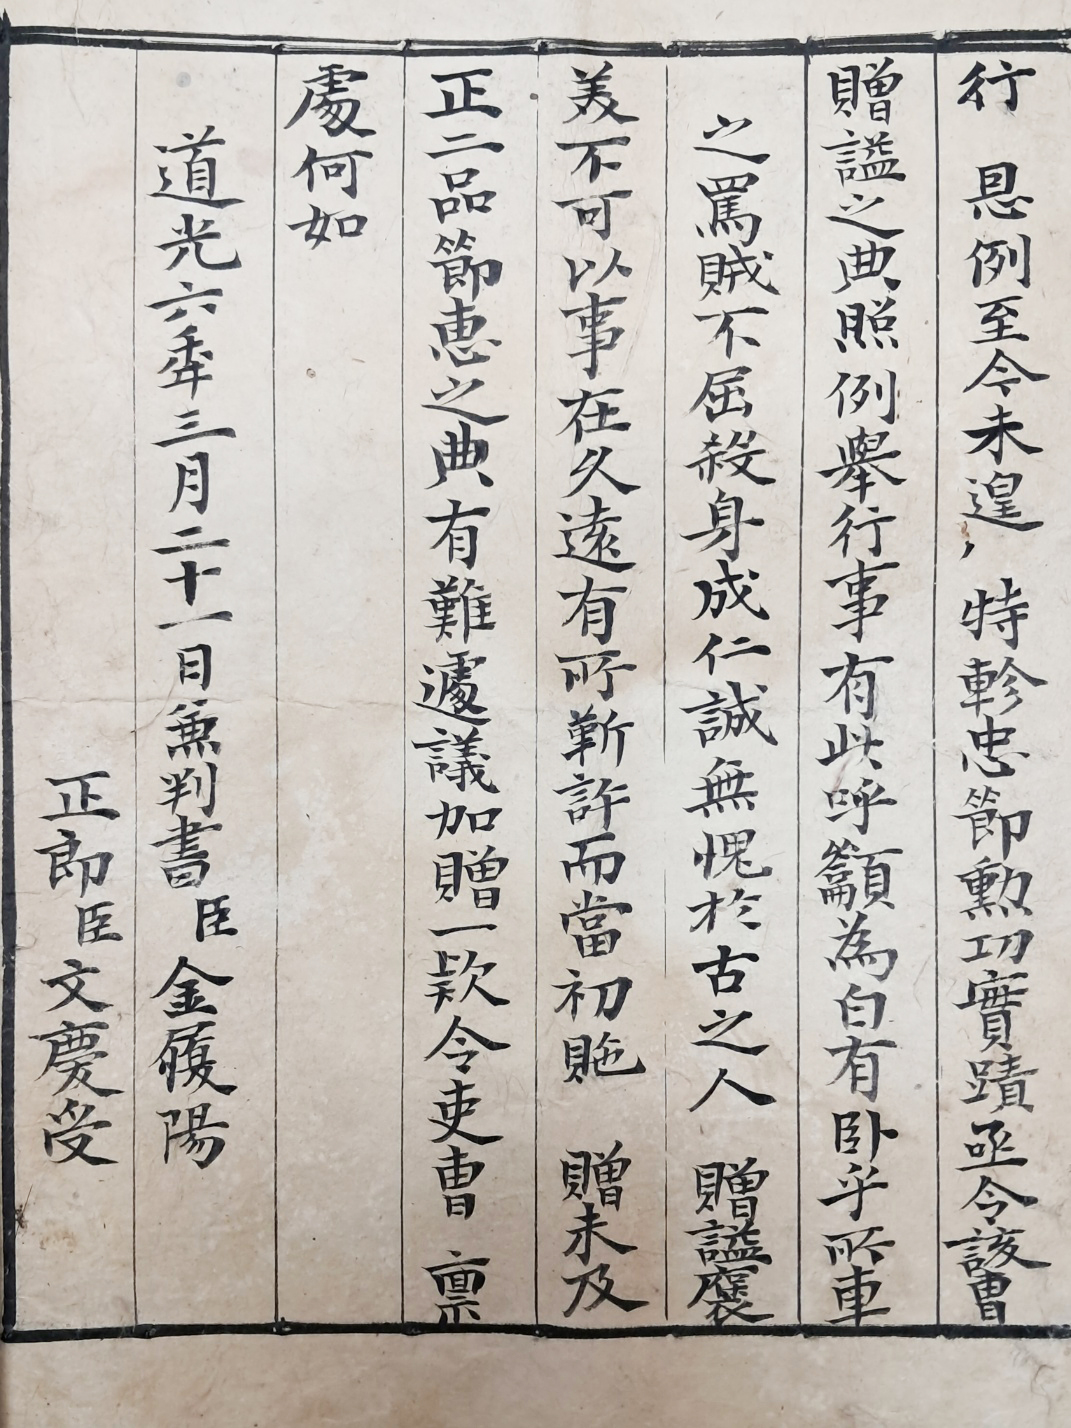 行　恩例至今未遑，特軫忠節勲功實蹟亟令該曺
贈諡之典照例舉行事有此呼籲為白有卧乎所車
之罵賊不屈殺身成仁誠無愧於古之人　贈諡褒
美不可以事在久遠有所靳許而當初貤　贈未及
正二品節惠之典有難遽議加贈一欵令吏曺　禀
處何如
道光六年三月二十一日兼判書臣金履陽
正郎臣文慶受